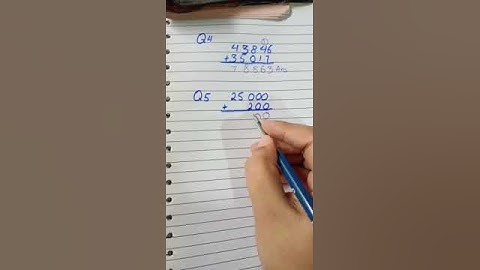 Q4
1
43846
+35017
78863 Ans
Q5 25 000
+ 200
00